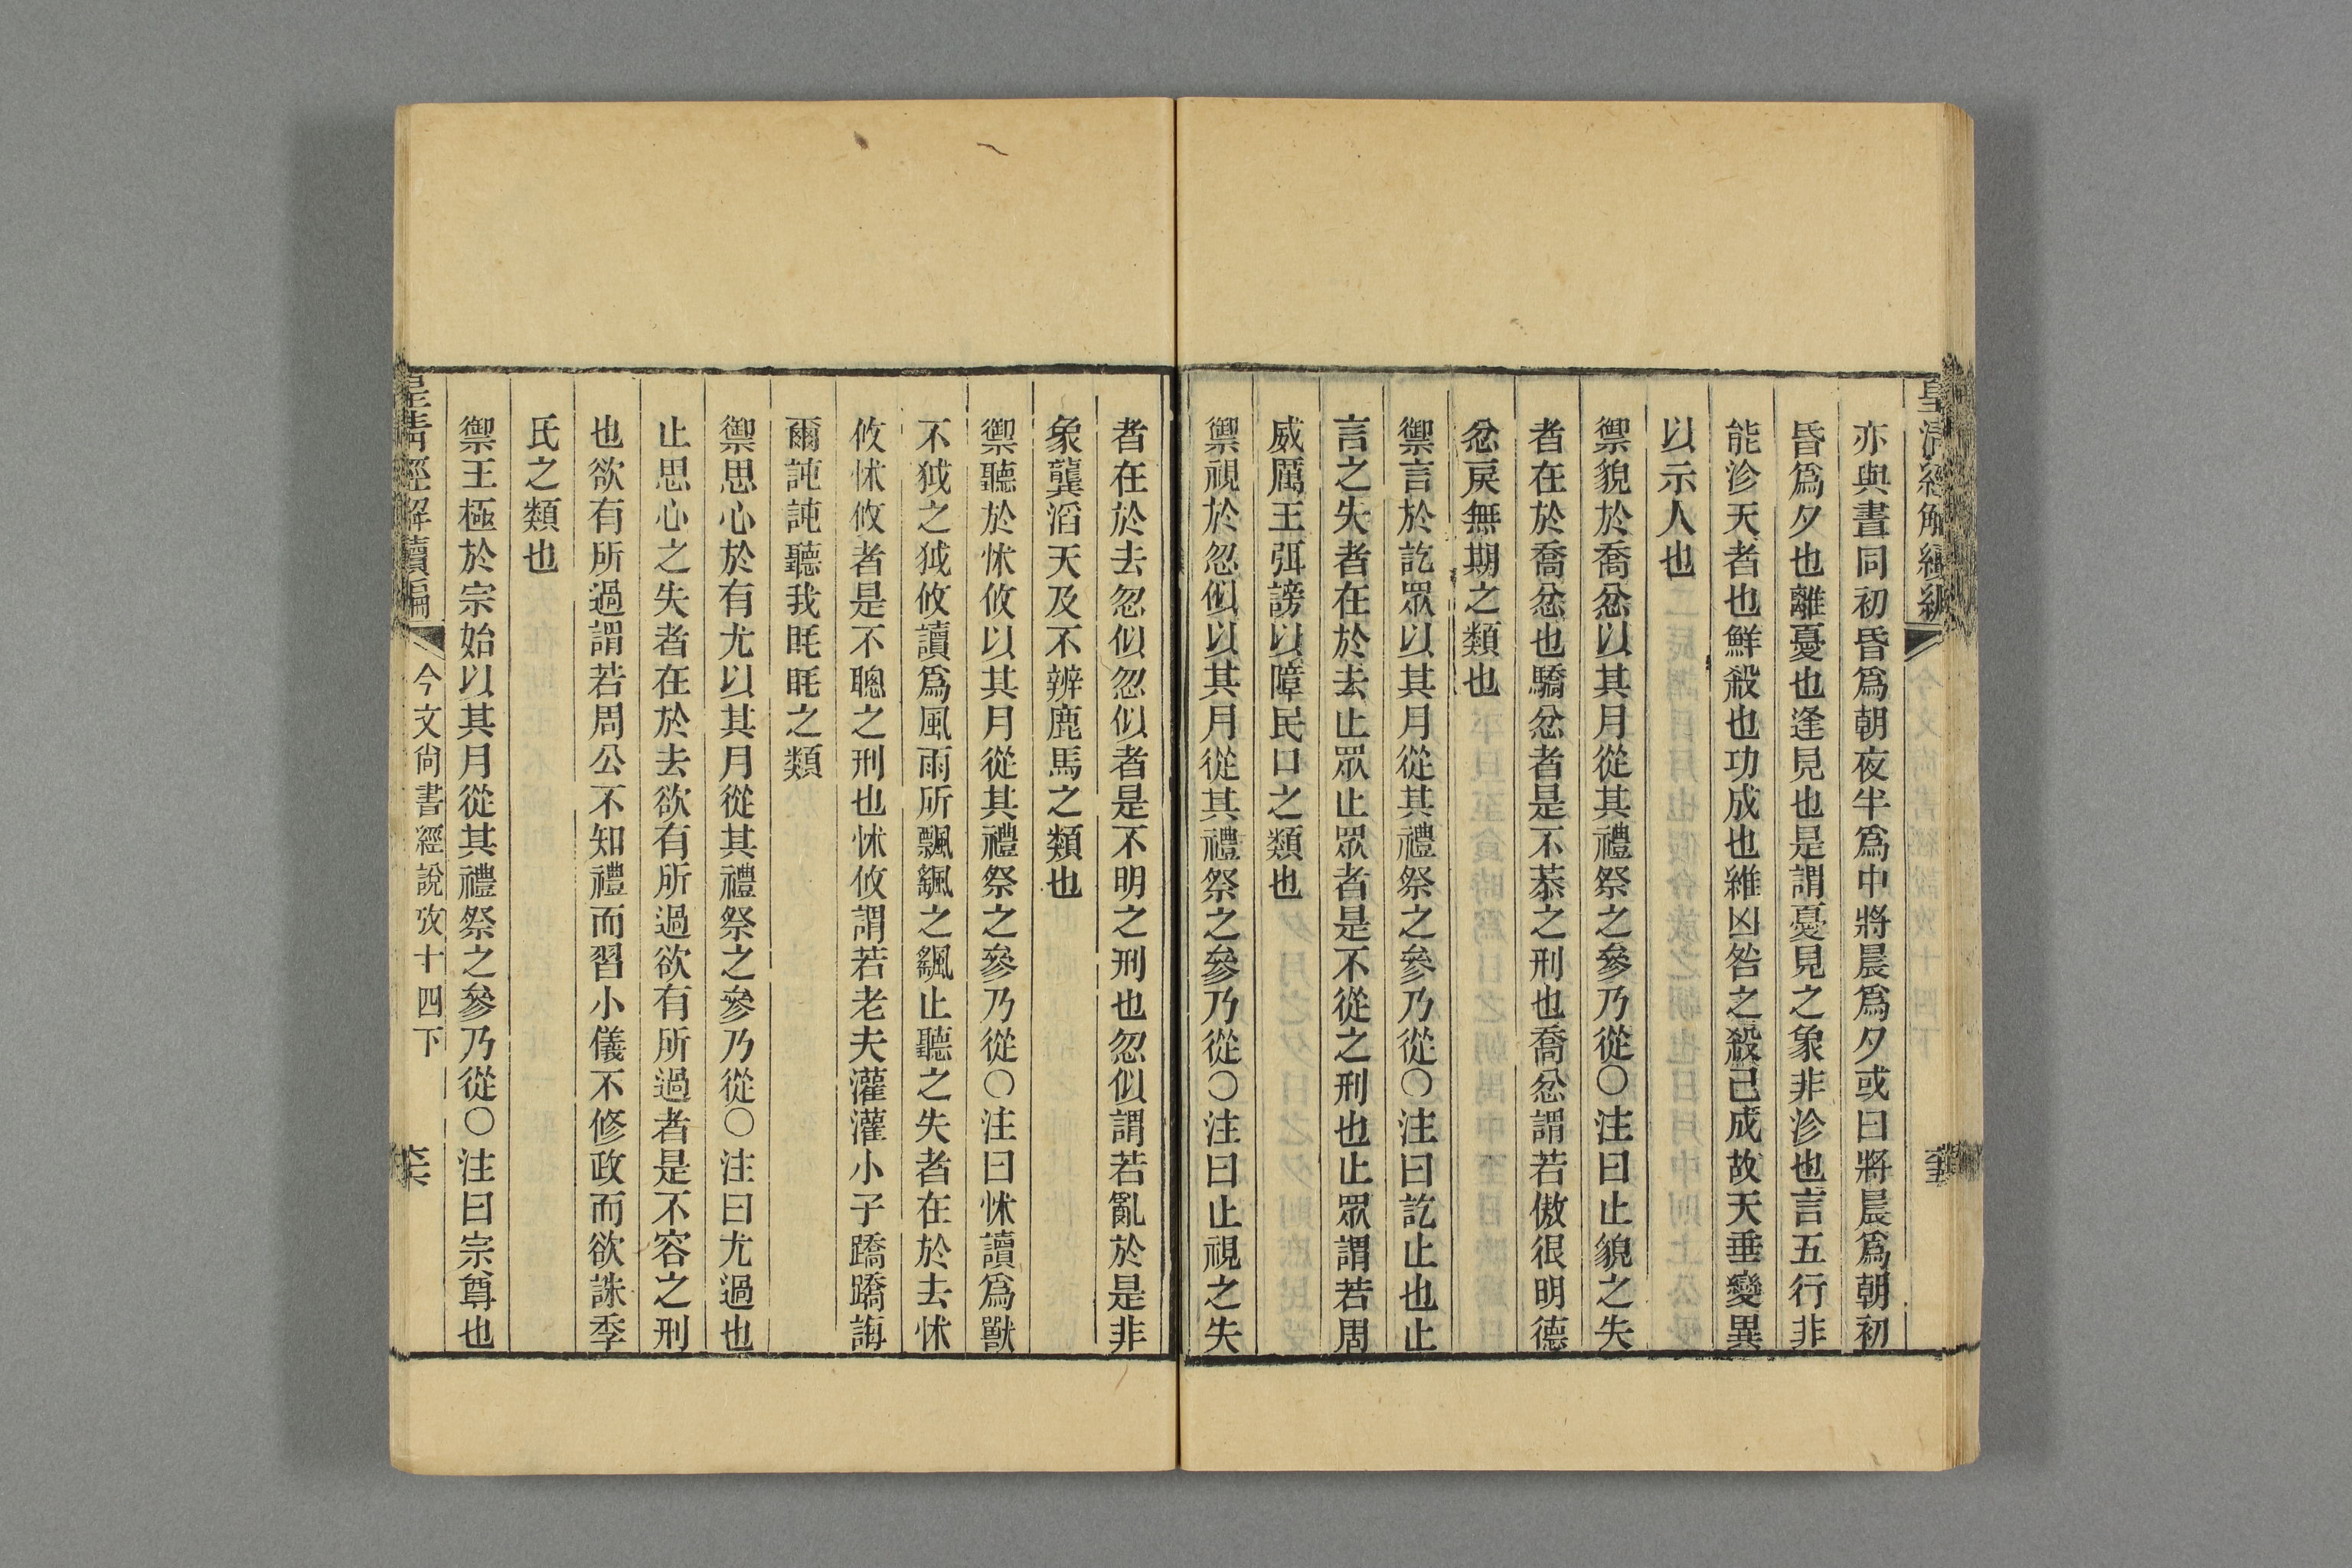 皇清經解續編
亦與晝同初昏爲朝夜半爲中將晨爲夕或曰將晨爲朝初
昏爲夕也離憂也逢見也是謂憂見之象非沴也言五行非
能沴天者也鮮殺也功成也維凶咎之殺已成故天垂變異
以示人也
禦貌於喬忿以其月從其禮祭之參乃從○注曰止貌之失
者在於喬忿也驕忿者是不恭之刑也喬忿謂若傲很明德
忿戾無期之類也
禦言於訖眾以其月從其禮祭之參乃從○注曰訖止也止
言之失者在於去止眾止眾者是不從之刑也止眾謂若周
威厲王弭謗以障民口之類也
禦視於忽似以其月從其禮祭之參乃從○注曰止視之失
者在於去忽似忽似者是不明之刑也忽似謂若亂於是非
象龔滔天及不辨鹿馬之類也
禦聽於怵攸以其月從其禮祭之參乃從○注曰怵讀爲獸
不狘之狘攸讀爲風雨所飄颻之颻止聽之失者在於去怵
攸怵攸者是不聰之刑也怵攸謂若老夫灌灌小子蹻蹻誨
爾訰訰聽我眊眊之類
禦思心於有尤以其月從其禮祭之參乃從○注曰尤過也
止思心之失者在於去欲有所過欲有所過者是不容之刑
也欲有所過謂若周公不知禮而習小儀不修政而欲誅季
氏之類也
禦王極於宗始以其月從其禮祭之參乃從○注曰宗尊也
皇清經解續編 今文尙書經說攷十四下